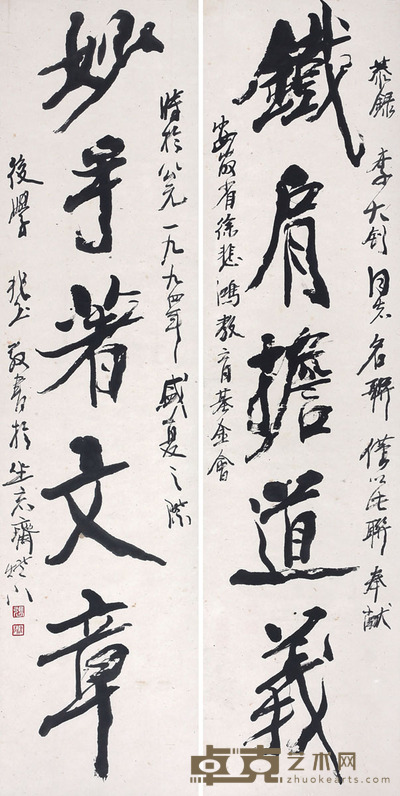 恭録 李大釗同志名聯 僅以此聯 奉献
鐵肩擔道義
安徽省徐悲鴻教育基金會
時於公元一九九四年盛夏之際
妙手著文章
後學 敬書於 齋燈下
卓克艺术网
www.zhuokearts.com